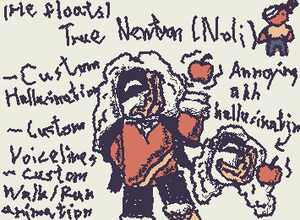 (He floats)
True Newton (Noli)
- Custom
Hallucination
- Custom
Voicelines
- Custom
Walk/Run
animation
Annoying
ahh
hallucination